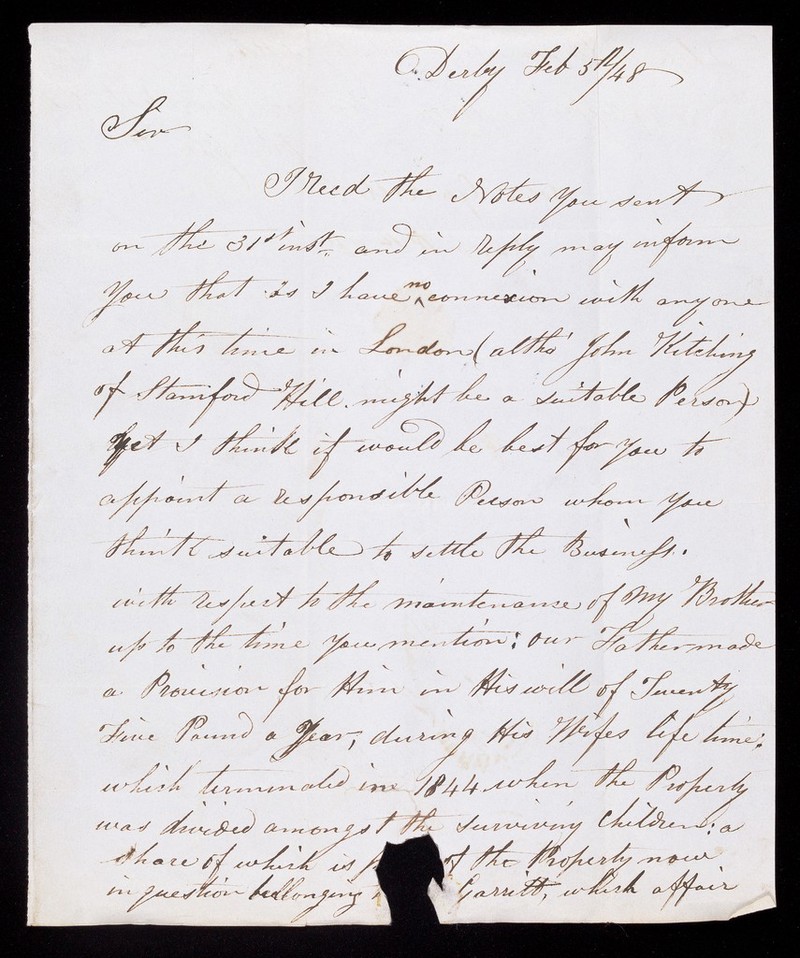 Derby Feb 5th/48
Sir
I Recd the Notes You sent
on the 31st inst. and in reply may inform
You that as I have no connexion with anyone
at this time in London (altho' John Kitching
of Stamford Hill might be a suitable Person)
yet I think it would be best for You to
appoint a responsible Person whom You
think suitable to settle the Business.
with respect to the maintenance of My Brother
up to the time You mention; our Father made
a Provision for Him in His will of Twenty
Five Pound a Year, during His Wifes life time;
which terminated in 1844 when the Property
was divided amongst the surviving Children; a
share of which is of the Property now
in question bellonging Garritt, which affair